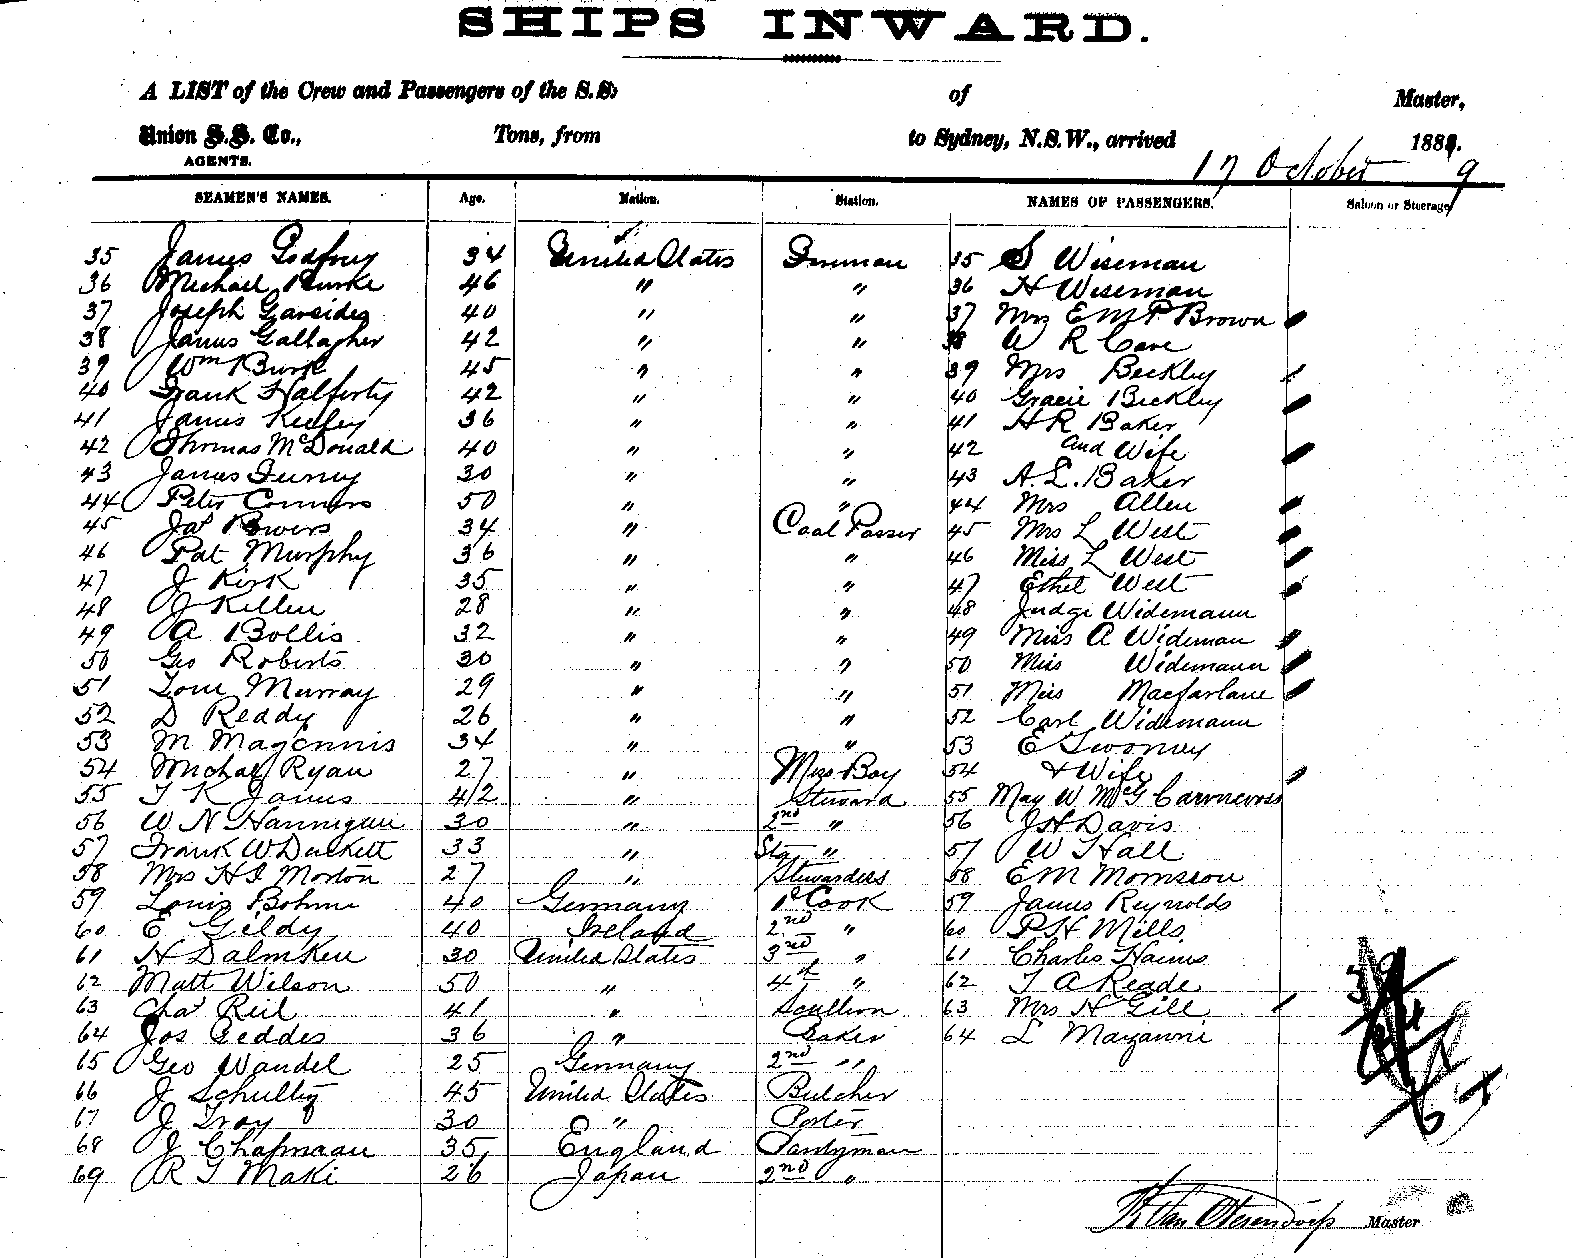 SHIPS INWARD.
A LIST of the Crew and Passengers of the S.S. of Master,
Union S.S. Co., Tons, from to Sydney, N.S.W., arrived 17 October 1889.
AGENTS.
SEAMEN'S NAMES. Age. Nation. Station. NAMES OF PASSENGERS. Saloon or Steerage
35 James Godfrey 34 United States Fireman 35 S Wiseman
36 Michael Burke 46 " " 36 H Wiseman
37 Joseph Garsides 40 " " 37 Mrs E M P Brown
38 James Gallagher 42 " " 38 W R Cave
39 Wm Burk 45 " " 39 Mrs Beckley
40 Frank Halferty 42 " " 40 Gracie Beckley
41 James Keefey 36 " " 41 H R Baker
42 Thomas McDonald 40 " " 42 and Wife
43 James Furney 30 " " 43 A. L. Baker
44 Peter Connors 50 " " 44 Mrs Allen
45 Jas Powers 34 " Coal Passer 45 Mrs L West
46 Pat Murphy 36 " " 46 Miss L West
47 J Kirk 35 " " 47 Ethel West
48 J Killen 28 " " 48 Judge Widemann
49 A Bollis 32 " " 49 Miss A Wideman
50 Geo Roberts 30 " " 50 Miss Widemann
51 Tom Murray 29 " " 51 Miss Macfarlane
52 D Reddy 26 " " 52 Carl Widemann
53 M Magennis 34 " " 53 E Twomey
54 Michael Ryan 27 " Mess Boy 54 & Wife
55 T K James 42 " Steward 55 May W McG
56 W N Hannigan 30 " 2nd " 56 J H Davis
57 Frank W Duckett 33 " Stg " 57 W Hall
58 Mrs H I Morton 27 " Stewardess 58 E M Momsson
59 Louis Bohme 40 Germany 1st Cook 59 James Reynolds
60 E Gildy 40 Ireland 2nd " 60 P H Mills
61 H Dalmken 30 United States 3rd " 61 Charles Haines
62 Matt Wilson 50 " 4th " 62 T A Reade
63 Chas Reil 41 " Scullion 63 Mrs H Gill
64 Jos Geddes 36 " Baker 64 L Mayanni
65 Geo Wandel 25 Germany 2nd "
66 J Schultz 45 United States Butcher
67 J Gray 30 " Porter
68 J Chapmaan 35 England Pantryman
69 R T Maki 26 Japan 2nd "
Master